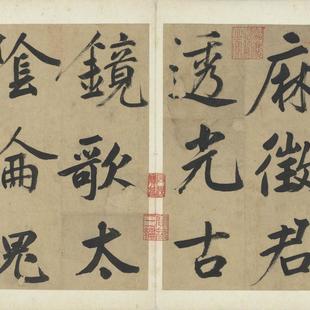 麻徵君
透光古
鏡歌太
隂侖